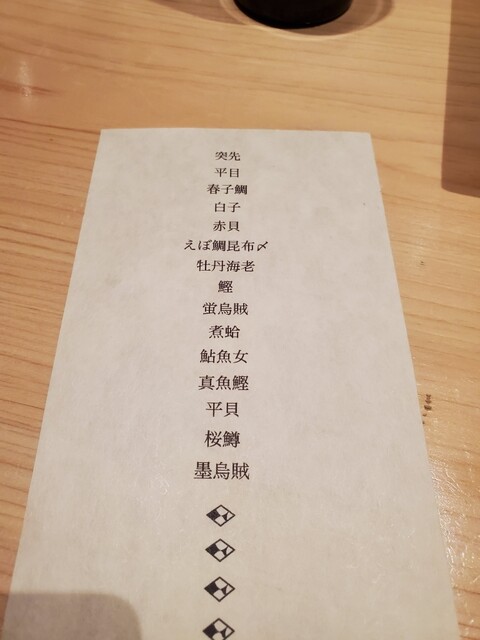 突先
平目
春子鯛
白子
赤貝
えぼ鯛昆布〆
牡丹海老
鰹
蛍烏賊
煮蛤
鮎魚女
真魚鰹
平貝
桜鱒
墨烏賊